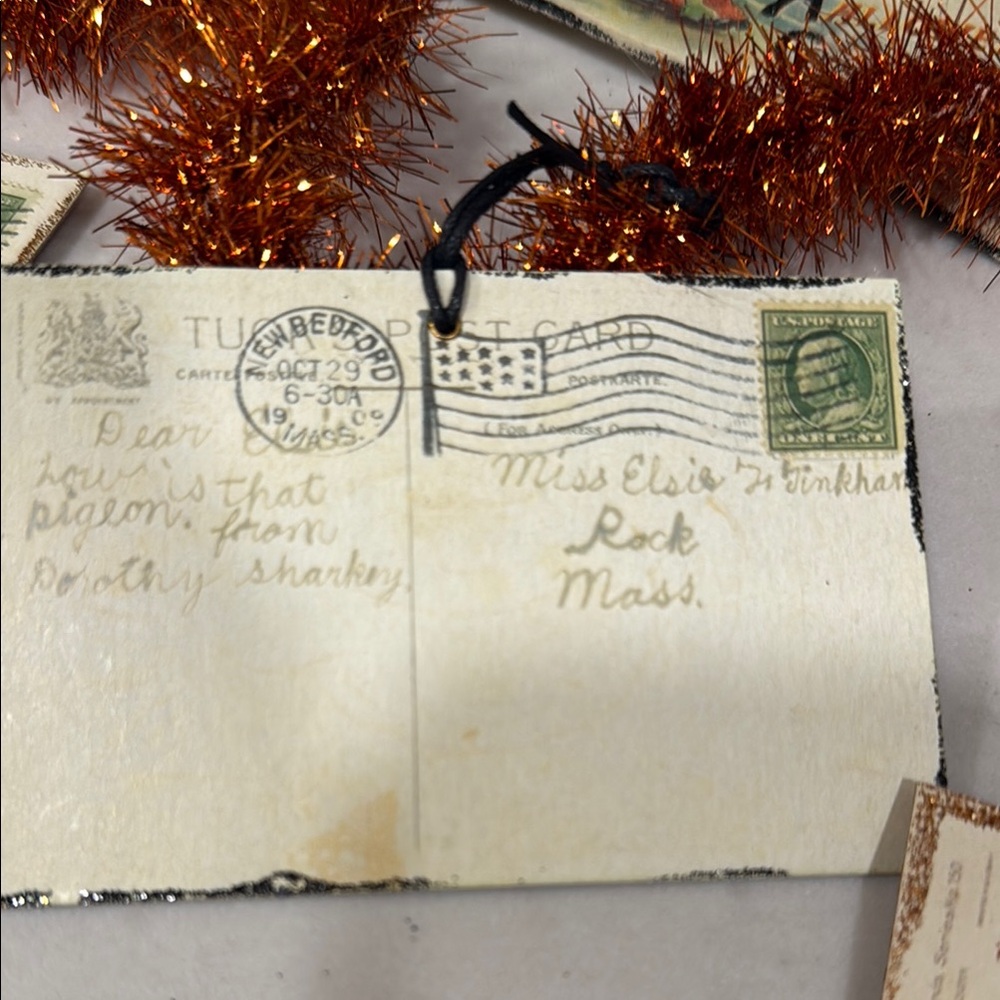 TUCK'S POST CARD
CARTE POSTALE. POSTKARTE.
BY APPOINTMENT
( FOR ADDRESS ONLY. )
NEW BEDFORD
OCT 29
6-30A
1909
MASS.
U.S. POSTAGE
ONE CENT
Dear
how is that
pigeon. from
Dorothy Sharkey.
Miss Elsie F. Tinkham
Rock
Mass.